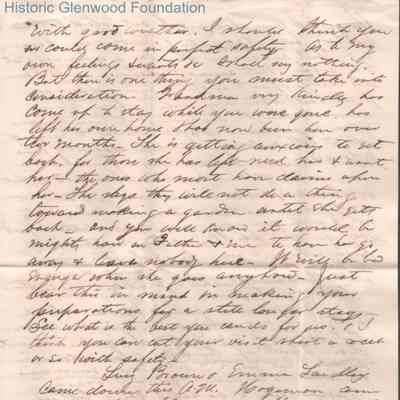 Historic Glenwood Foundation
With good weather. I should think you
could come in perfect safety. As to my
own feelings
But there is one thing you must take into
consideration Grandma very kindly has
come up to stay while you were gone has
left his own home & has now been here over
two months. She is getting anxious to get
back, for those she has left need her & want
her - the ones who most have claims upon
her - She says they will not do a thing
toward making a garden until she gets
back - and you will know it would be
mighty hard on Father & me to have her go
away & leave nobody here - It will be bad
enough when she goes anyhow - Just
bear this in mind in making your
preparations for a
See what is the best you can do for us. I
think you can cut your visit short a week
or so with safety -
Brown & Emma
Came down this A.M.